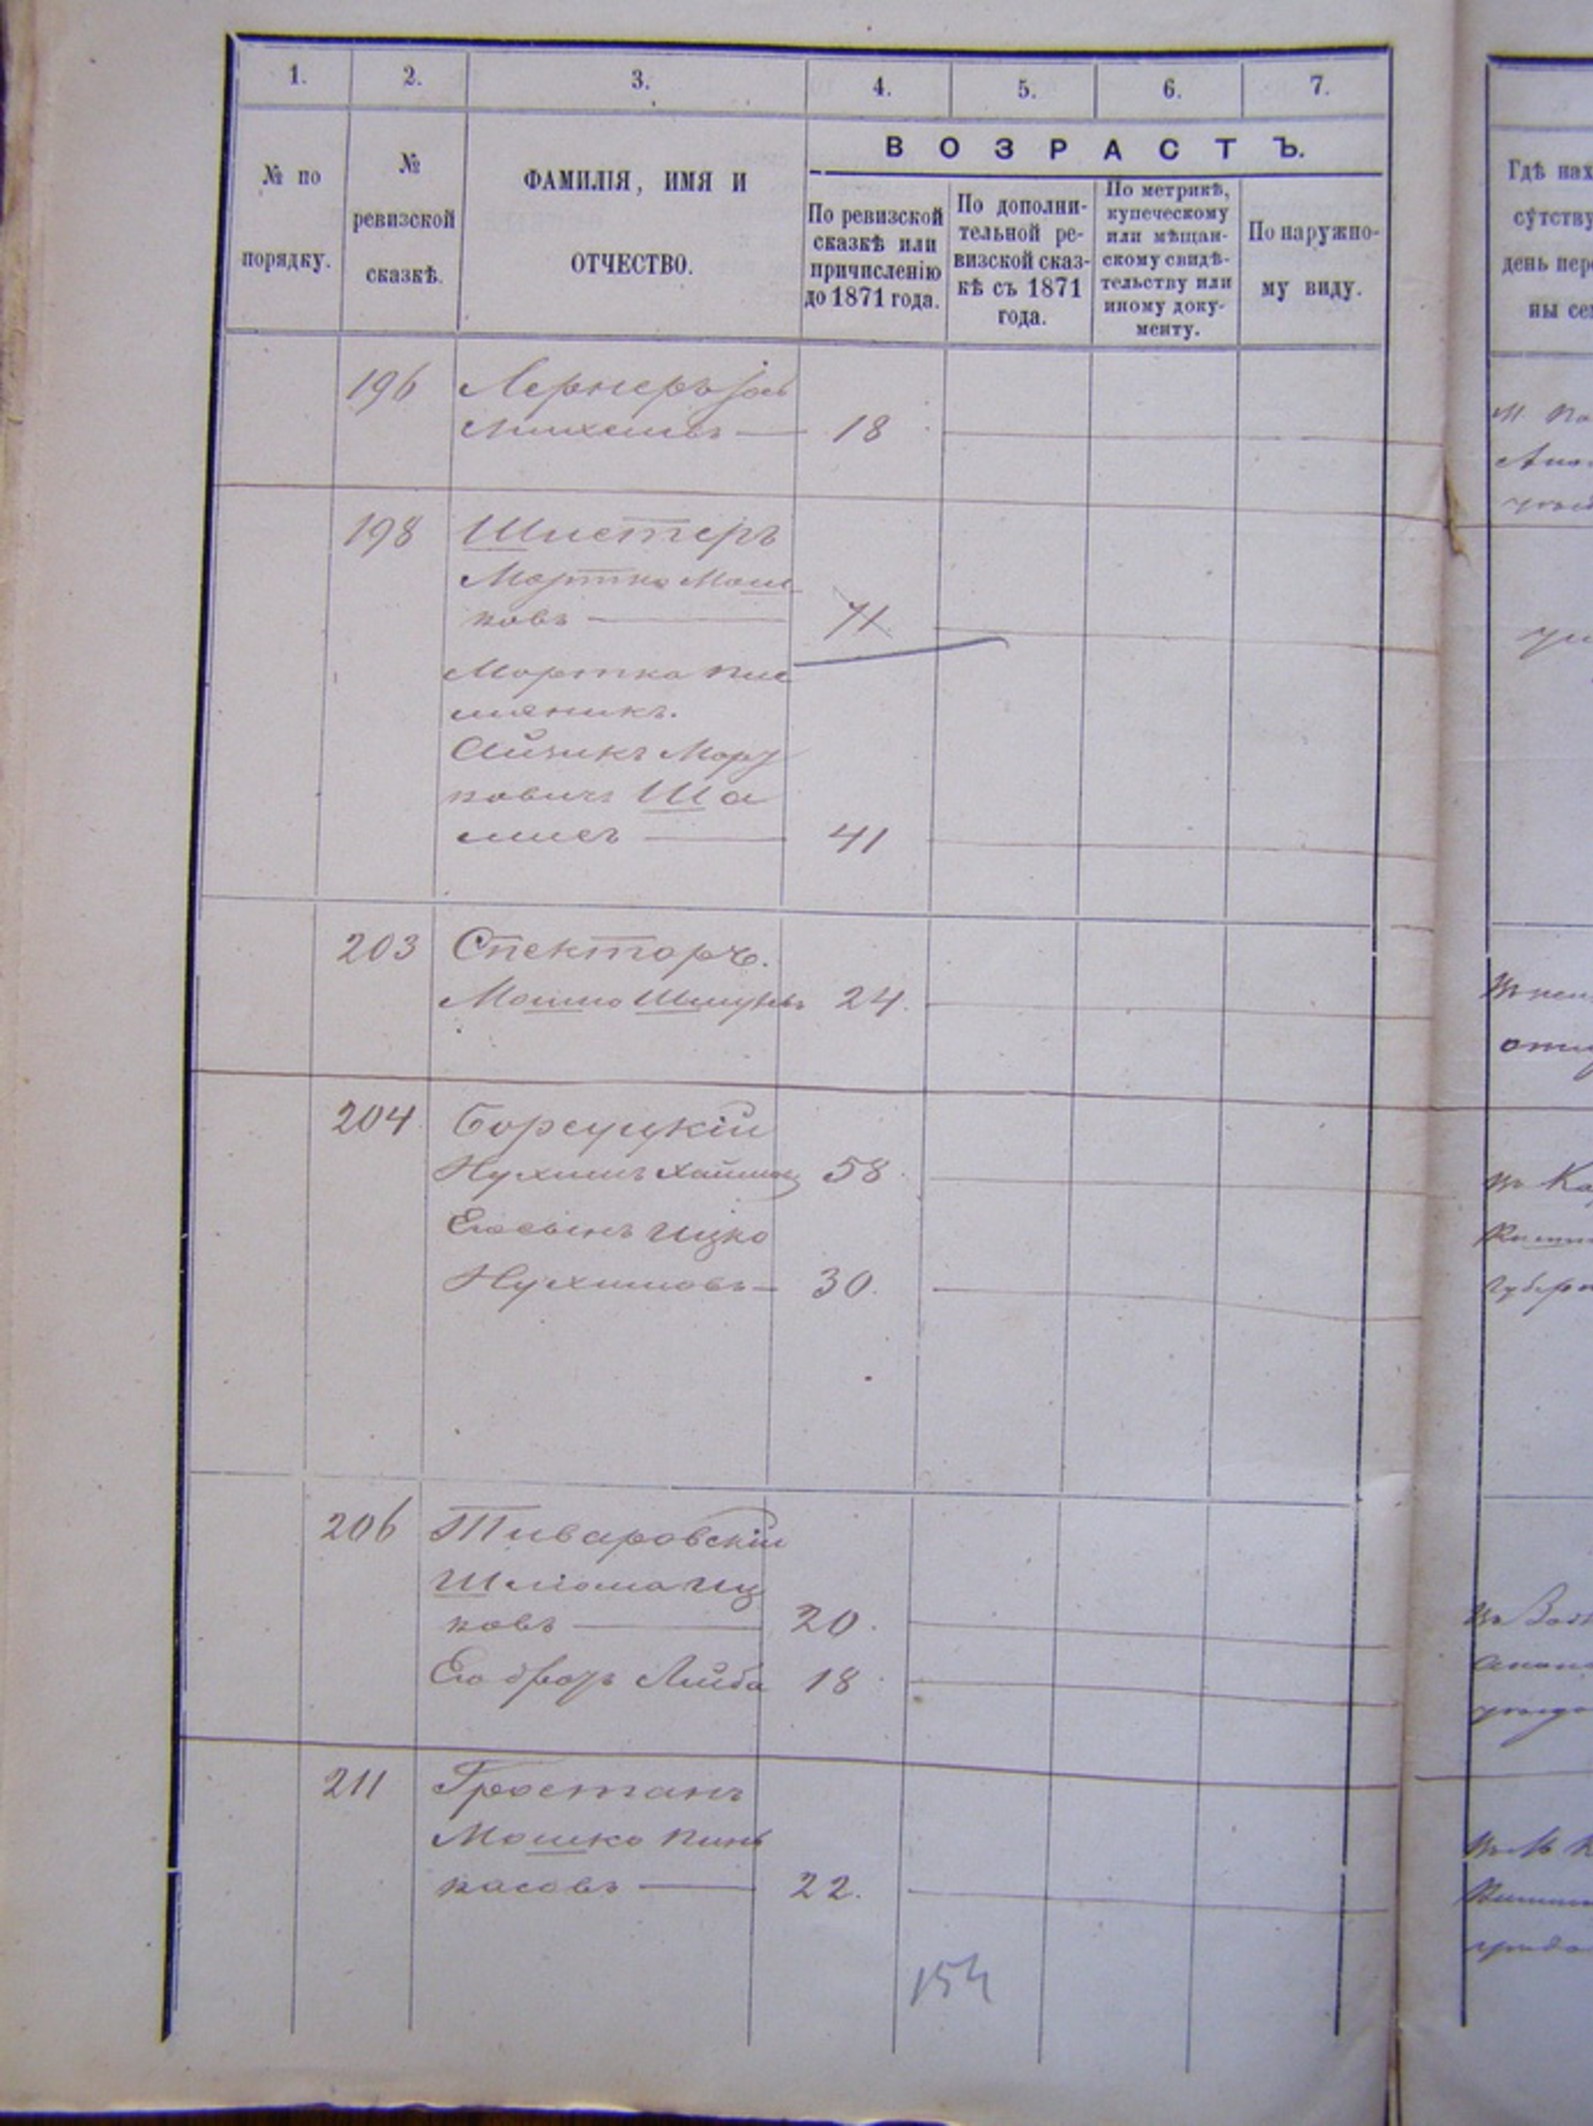 1. 2. 3. 4. 5. 6. 7.
№ по порядку.
№ ревизской сказкѣ.
ФАМИЛІЯ, ИМЯ И
ОТЧЕСТВО.
ВОЗРАСТЪ.
По ревизской
сказкѣ или
причисленію
до 1871 года.
По дополни-
тельной ре-
визской сказ-
кѣ съ 1871
года.
По метрикѣ,
купеческому
или мѣщан-
скому свидѣ-
тельству или
иному доку-
менту.
По наружно-
му виду.
Гдѣ нах
сутству
день пер
ны се
196 Лернеръ Іось
18
198 Шистеръ
Мортко Мош-
ковъ 71
Мортка пле
мяникъ.
АйзикъМорд
ковичъ Ша
41
203 Спекторъ.
Мошко 24.
204
Нухимъ Хаимов 58
Его сынъ Ицко
Нухимовъ 30.
206 Тиваровскій
Шліома Иц
ковъ 20.
Его братъ Лейба 18
211 Гростанъ
Мошко Пинь
касовъ 22.
154